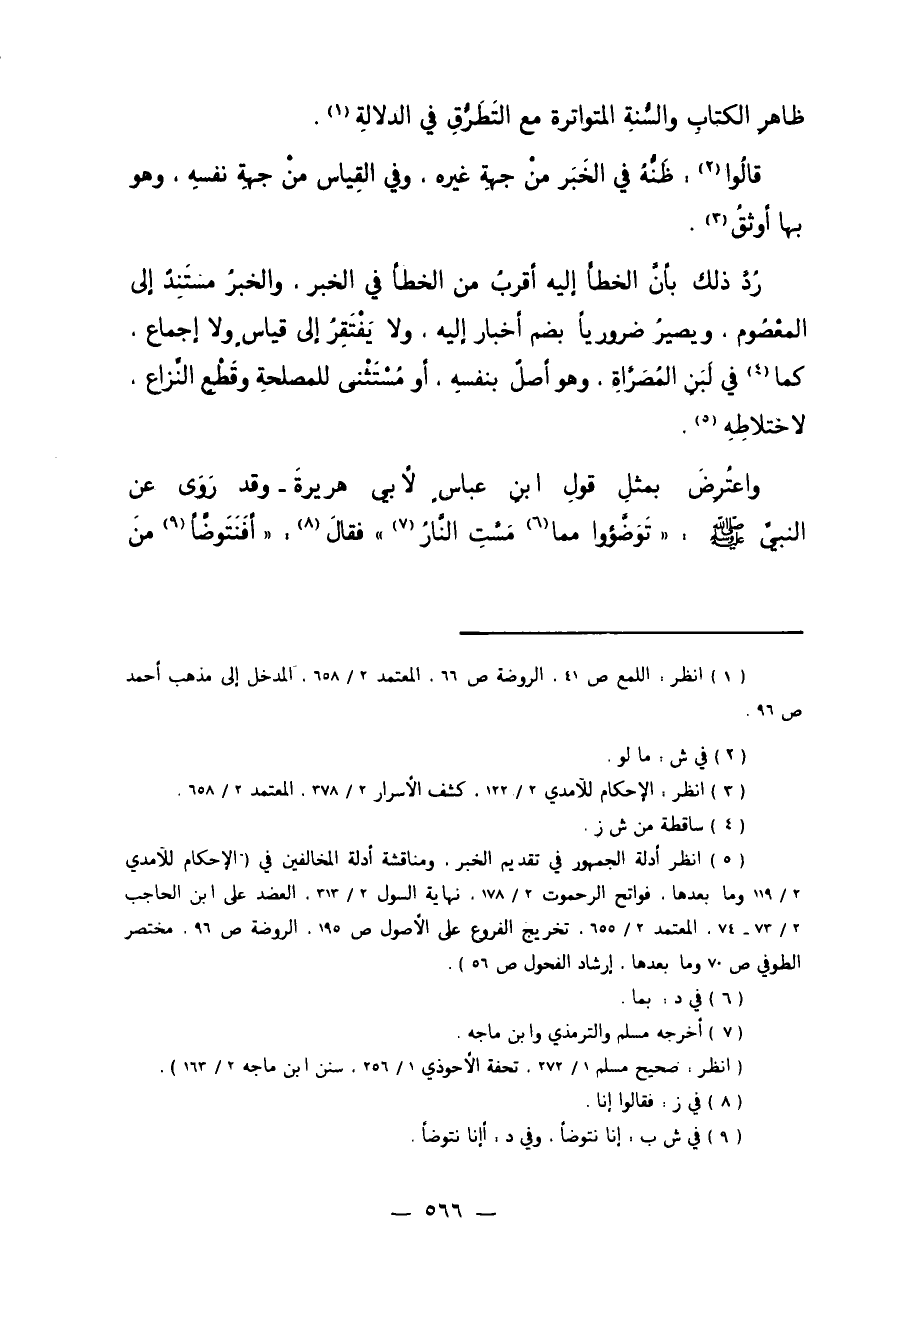 ظاهرِ الكتابِ والسُّنةِ المتواترة مع التَطَرُّقِ في الدلالةِ (١) .
قالُوا (٢) : ظَنُّهُ في الخَبَر منْ جهةِ غيره ، وفي القِياس منْ جهةِ نفسهِ ، وهو
بها أوثقُ (٣) .
رُدَّ ذلك بأنَّ الخطأ إليه أقربُ من الخطأ في الخبر ، والخبرُ مستَنِدٌ إلى
المعْصُوم ، ويصيرُ ضرورياً بضم أخبار إليه ، ولا يَفْتَقِرُ إلى قياسٍ ولا إجماعٍ ،
كما (٤) في لَبَنِ المُصَرَّاةِ ، وهو أصلٌ بنفسهِ ، أو مُسْتَثْنى للمصلحةِ وقَطْعِ النِّزاعِ ،
لاختلاطِهِ (٥) .
واعتُرِضَ بمثلِ قولِ ابنِ عباسٍ لأبي هريرةَ - وقد رَوَى عن
النبيِّ ﷺ : « تَوَضَّؤوا مما (٦) مَسَّتِ النَّارُ (٧) » فقالَ (٨) : « أَفَنَتَوضَّأُ (٩) منَ
( ١ ) انظر : اللمع ص ٤١ ، الروضة ص ٦٦ ، المعتمد ٢ / ٦٥٨ ، المدخل إلى مذهب أحمد
ص ٩٦ .
( ٢ ) في ش : ما لو .
( ٣ ) انظر : الإحكام للآمدي ٢ / ١٢٢ ، كشف الأسرار ٢ / ٣٧٨ ، المعتمد ٢ / ٦٥٨ .
( ٤ ) ساقطة من ش ز .
( ٥ ) انظر أدلة الجمهور في تقديم الخبر ، ومناقشة أدلة المخالفين في ( الإحكام للآمدي
٢ / ١١٩ وما بعدها ، فواتح الرحموت ٢ / ١٧٨ ، نهاية السول ٢ / ٣١٣ ، العضد على ابن الحاجب
٢ / ٧٣ - ٧٤ ، المعتمد ٢ / ٦٥٥ ، تخريج الفروع على الأصول ص ١٩٥ ، الروضة ص ٩٦ ، مختصر
الطوفي ص ٧٠ وما بعدها ، إرشاد الفحول ص ٥٦ ) .
( ٦ ) في د : بما .
( ٧ ) أخرجه مسلم والترمذي وابن ماجه .
( انظر : صحيح مسلم ١ / ٢٧٢ ، تحفة الأحوذي ١ / ٢٥٦ ، سنن ابن ماجه ٢ / ١٦٣ ) .
( ٨ ) في ز : فقالوا إنا .
( ٩ ) في ش ب : إنا نتوضأ ، وفي د : أإنا نتوضأ .
— ٥٦٦ —